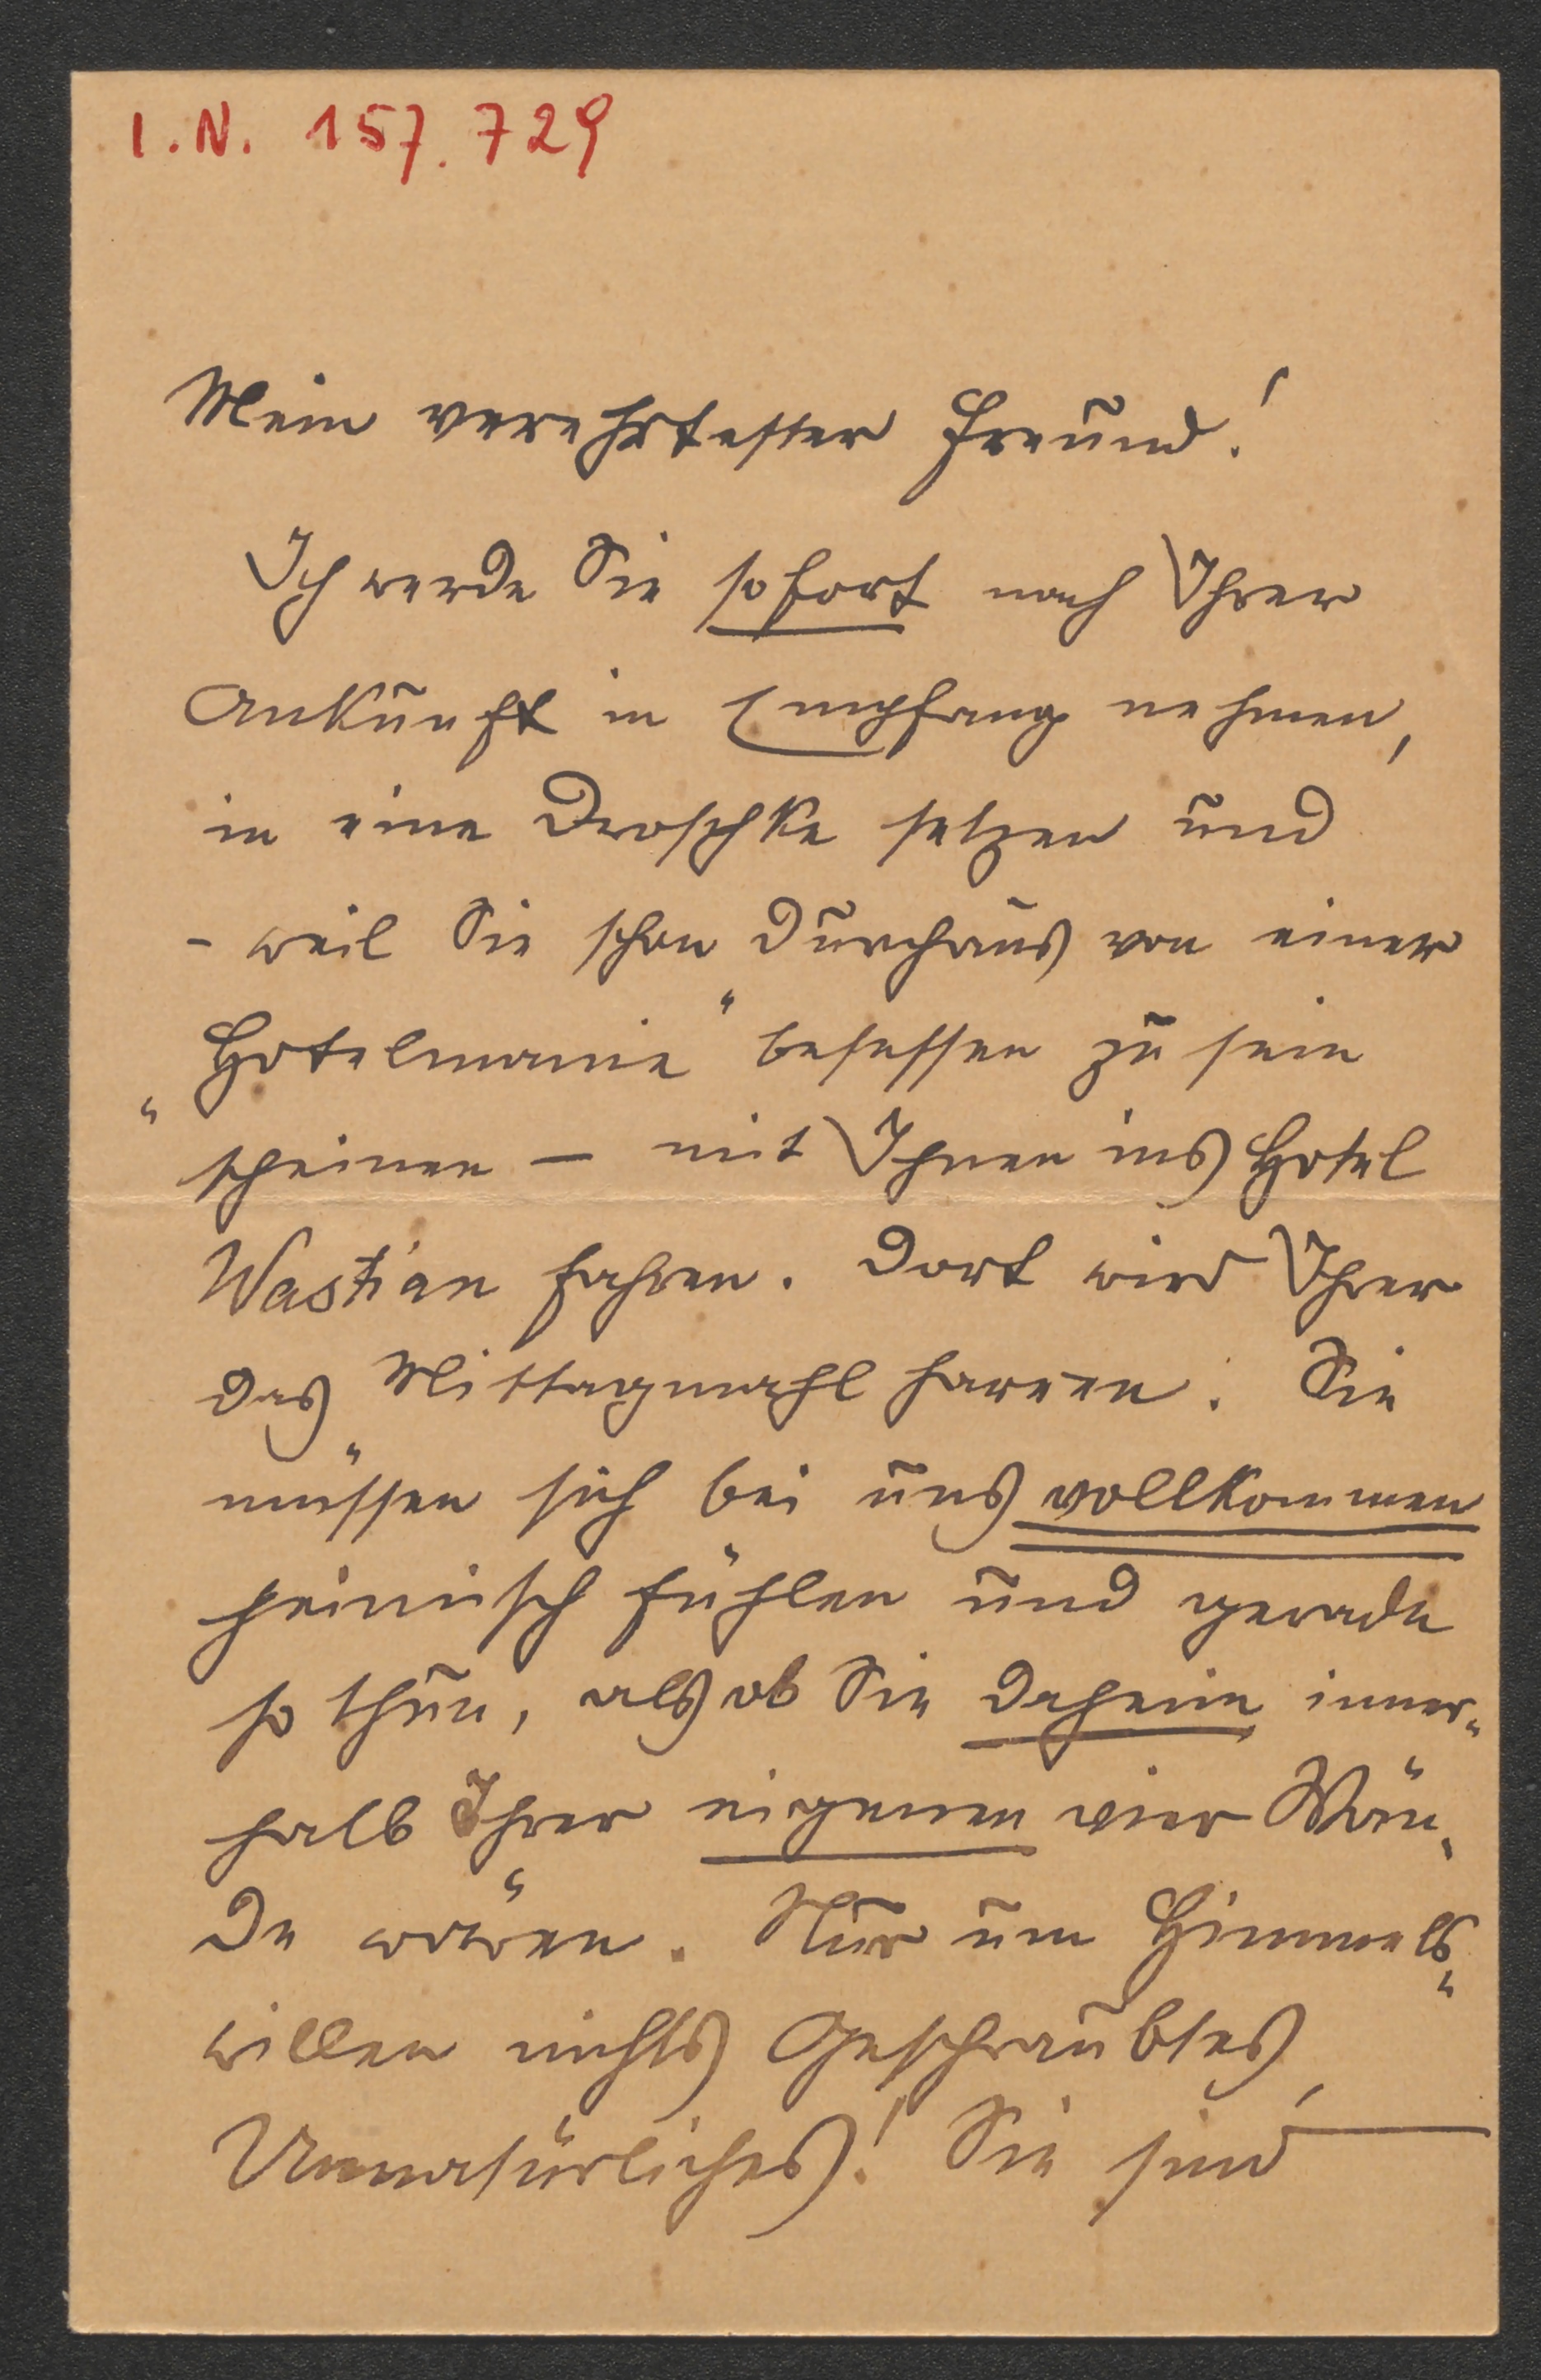 I.N. 157.729
Mein verehrtester Freund!
Ich werde Sie sofort nach Ihrer
Ankunft in Empfang nehmen,
in eine Droschke setzen und
- weil Sie schon durchaus von einer
„Hotelmanie“ besessen zu sein
scheinen – mit Ihnen ins Hotel
Wastian fahren. Dort wird Ihrer
das Mittagmahl harren. Sie
müssen sich bei uns vollkommen
heimisch fühlen und gerade
so thun, als ob Sie daheim inner-
halb Ihrer eigenen vier Wän-
de wären. Nur um Himmels-
willen nichts Geschraubtes,
Unnatürliches! Sie sind